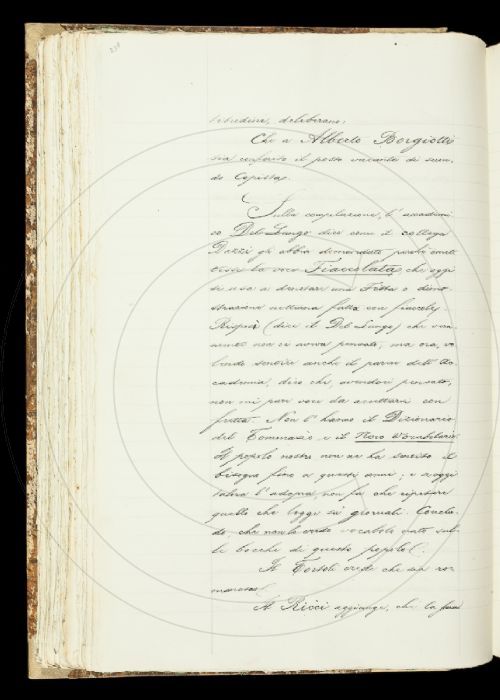 deliberano:
Che a Alberto Borgiotti
sia conferito il posto vacante di secon-
do Copista.
Sulla compilazione, l'accademi-
co Del Lungo dice come il collega
Dazzi gli abbia domandato perché
la voce Fiaccolata, che oggi
si usa a denotare una Festa o dimo-
strazione notturna fatta con fiaccole.
Risposi (dice il Del Lungo) che vera-
mente non ci aveva pensato; ma ora, vo-
lendo sentire anche il parere dell'Ac-
cademia, dico che, avendoci pensato,
non mi pare voce da accettarsi con
fretta. Non l'hanno il Dizionario
del Tommaseo e il Novo Vocabolario.
Il popolo nostro non ne ha sentito il
bisogno fino a questi anni; e se oggi
talora l'adopra non fa che ripetere
quello che legge sui giornali. Conclu-
do, che non la credo vocabolo nato sul-
le bocche di questo popolo.
Il Tortoli crede che sia ro-
manesco.
Il Ricci aggiunge, che la